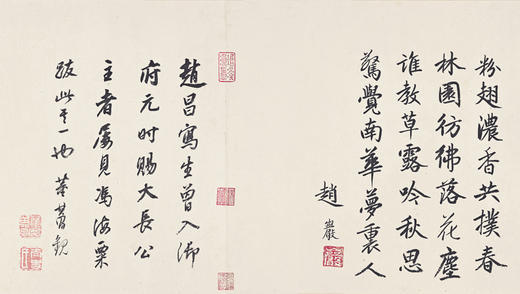 粉翅濃香共撲春
林園彷彿落花塵
誰教草露吟秋思
驚覺南華夢裏人
趙巖
趙昌寫生曾入御
府元時賜大長公
主者屢見馮海粟
跋此其一也 董其昌觀